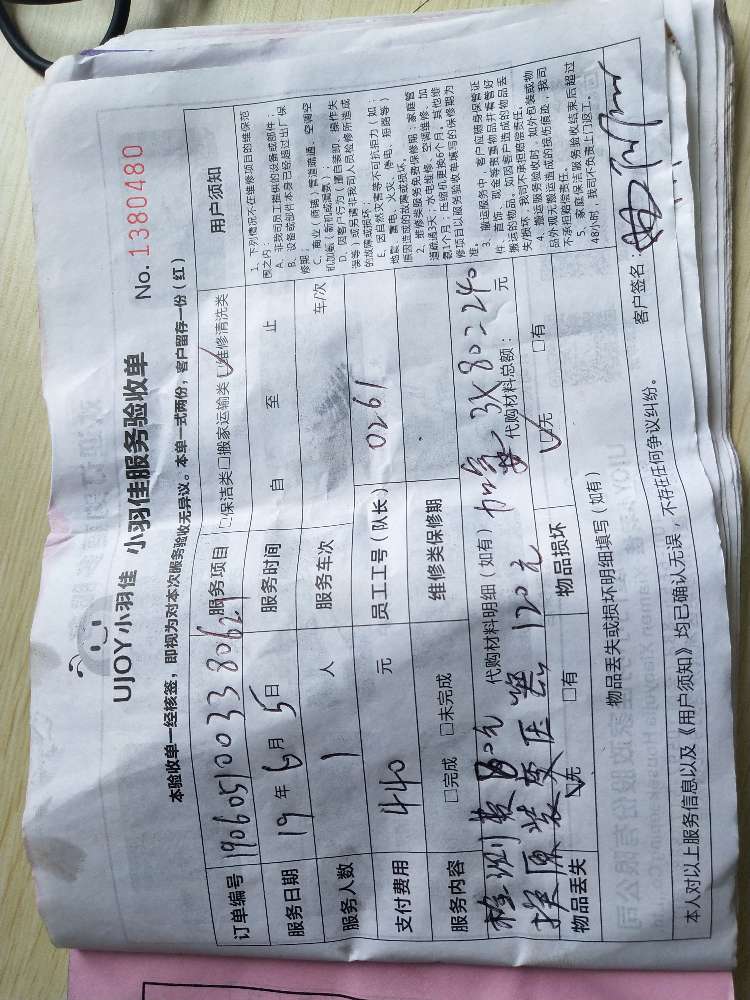 UJOY小羽佳 小羽佳服务验收单
No. 1380480
本验收单一经核签，即视为对本次服务验收无异议。本单一式两份，客户留存一份（红）
订单编号 190605100338062 服务项目 □保洁类 □搬家运输类 □维修清洗类
服务日期 19年6月5日 服务时间 自 至 止
服务人数 1 人 服务车次 车/次
支付费用 440 元 员工工号（队长） 0261
服务内容 □完成 □未完成 维修类保修期
检测费80元 代购材料明细（如有）加氟 3X80=240
换原装变压器120元 代购材料总额： 元
物品丢失 □无 □有 物品损坏 □无 □有
物品丢失或损坏明细填写（如有）
本人对以上服务信息以及《用户须知》均已确认无误，不存在任何争议纠纷。
客户签名：
用户须知
1、下列情况不在维修项目的维保范
围之内：
A、非我司员工提供的设备或部件；
B、设备或部件本身已经超过出厂保
修期；
C、商业（商铺）管道疏通、空调空
机加氨（新机或漏氨）；
D、因客户行为（擅自装卸、操作失
误等）或另请非我司人员检修所造成
的故障或损坏；
E、因自然灾害等不可抗拒力（如：
地震、雷击、火灾、停电、短路等）
原因造成的故障或损坏。
2、维修类服务免费保修期：家庭管
道疏通3天；水电维修、空调维修、加
氨1个月；压缩机更换6个月。其他维
修项目以服务验收单填写的保修期为
准。
3、搬运服务中，客户应随身保管证
件、首饰、现金等贵重物品并看管好
搬运的物品，如因客户造成的物品丢
失损坏，我司不承担赔偿责任。
4、搬运服务验收时，如外包装或物
品外观无搬运造成的损伤痕迹，我司
不承担赔偿责任。
5、家庭保洁服务验收结束后超过
48小时，我司不负责上门返工。